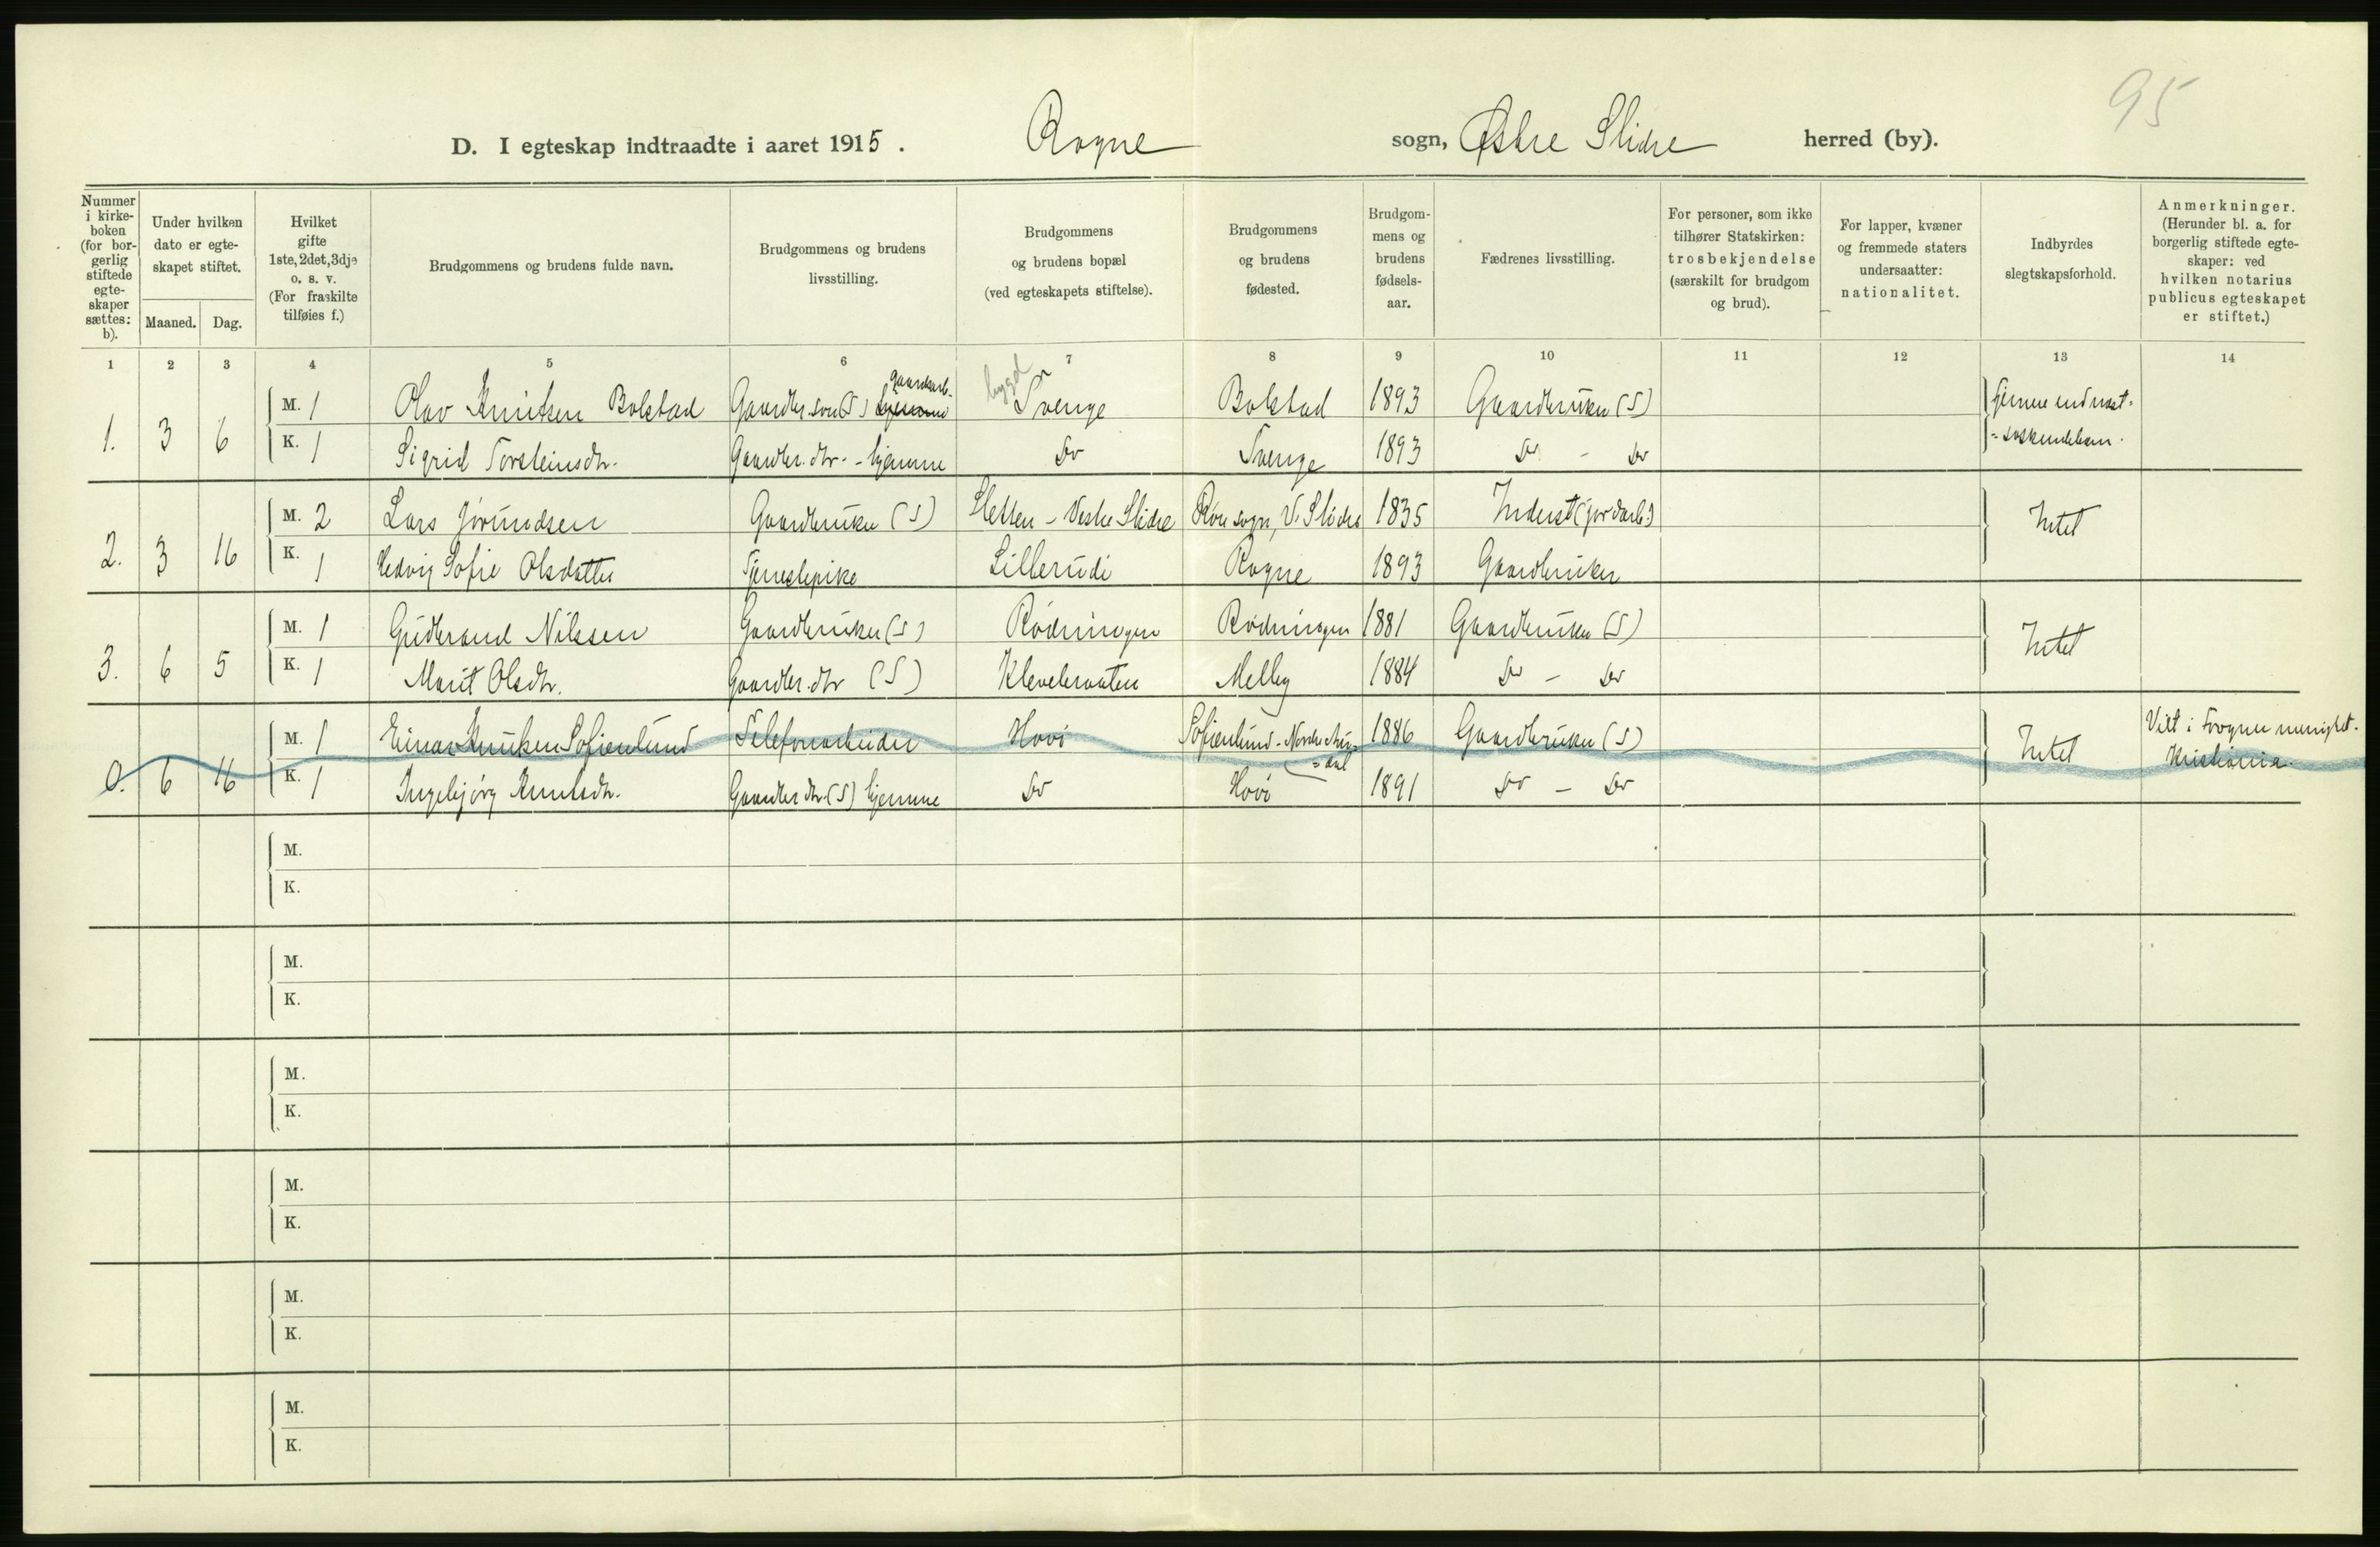 95
D. I egteskap indtraadte i aaret 1915. Rogne sogn, Østre Slidre herred (by).
Nummer i kirke-boken (for bor-gerlig stiftede egte-skaper sættes: b).
Under hvilken dato er egte-skapet stiftet.
Maaned. Dag.
Hvilket gifte 1ste, 2det, 3dje o. s. v. (For fraskilte tilføies f.)
Brudgommens og brudens fulde navn.
Brudgommens og brudens livsstilling.
Brudgommens og brudens bopæl (ved egteskapets stiftelse).
Brudgommens og brudens fødested.
Brudgom-mens og brudens fødsels-aar.
Fædrenes livsstilling.
For personer, som ikke tilhører Statskirken: trosbekjendelse (særskilt for brudgom og brud).
For lapper, kvæner og fremmede staters undersaatter: nationalitet.
Indbyrdes slegtskapsforhold.
Anmerkninger. (Herunder bl. a. for borgerlig stiftede egte-skaper: ved hvilken notarius publicus egteskapet er stiftet.)
1 2 3 4 5 6 7 8 9 10 11 12 13 14
gaardarb. bygd
M. 1 Olav Knutsen Bolstad Gaardbr. søn (S) hjemme Svenge Bolstad 1893 Gaardbruker (S) fjernere end næst-
1. 3 6
K. 1 Sigrid Torsteinsdtr. Gaardbr. dtr. - hjemme Do Svenge 1893 Do - Do =søskendebarn.
M. 2 Lars Jörundsen Gaardbruker (S) Sletten - Vestre Slidre Røn sogn, V. Slidre 1835 Inderst (jordarb.) Intet
2. 3 16
K. 1 Hedvig Sofie Olsdatter Tjenestepike Lillerudi Rogne 1893 Gaardbruker
M. 1 Gudbrand Nilssen Gaardbruker (S) Rødningen Rødningen 1881 Gaardbruker (S) Intet
3. 6 5
K. 1 Marit Olsdtr. Gaardbr. dtr (S) Klevebraaten Melby 1884 Do - Do
M. 1 Einar Knutsen Sofienlund Telefonarbeider Hovi Sofienlund - Nordre Aur-=dal 1886 Gaardbruker (S) Intet Viet i Frogner menighet. Kristiania.
0. 6 16
K. 1 Ingebjørg Knutsdtr. Gaardbr dtr. (S) hjemme Do Hovi 1891 Do - Do
M.
K.
M.
K.
M.
K.
M.
K.
M.
K.
M.
K.